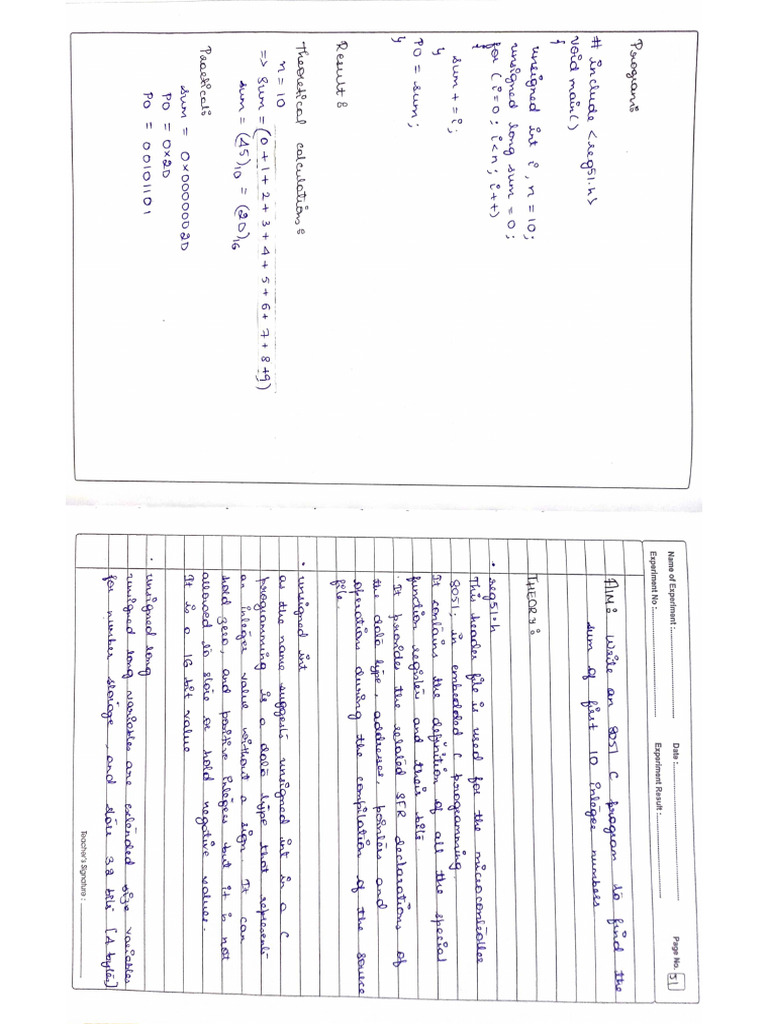 Program:
# include <reg51.h>
void main()
{
unsigned int i, n = 10;
unsigned long sum = 0;
for (i=0; i<n; i++)
{
sum += i;
}
P0 = sum;
}
Result:
Theoretical calculations:
n = 10
=> sum = (0+1+2+3+4+5+6+7+8+9)
sum = (45)10 = (2D)16
Practical:
sum = 0x0000002D
P0 = 0x2D
P0 = 00101101
Name of Experiment : Date : Page No. 51
Experiment No : Experiment Result :
AIM: Write an 8051 C program to find the
sum of first 10 integer numbers
THEORY:
• reg51.h
This header file is used for the microcontroller
8051; in embedded C programming.
It contains the definition of all the special
function register and their bits.
. It provides the related SFR declarations of
the data type, addresses, pointers and
operations during the compilation of the source
file.
• unsigned int
as the name suggests unsigned int in a C
programming is a data type that represents
an integer value without a sign. It can
hold zero, and positive integers but it is not
allowed to store or hold negative values.
It is a 16 bit value
• unsigned long
unsigned long variables are extended size variables
for number storage, and store 32 bits [4 bytes]
Teacher's Signature :